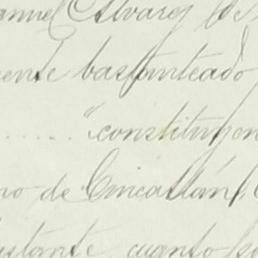 anuel Alvarez de
ente bastanteado
...... "constituyen
no de Cuicatlán,
bstante cuanto